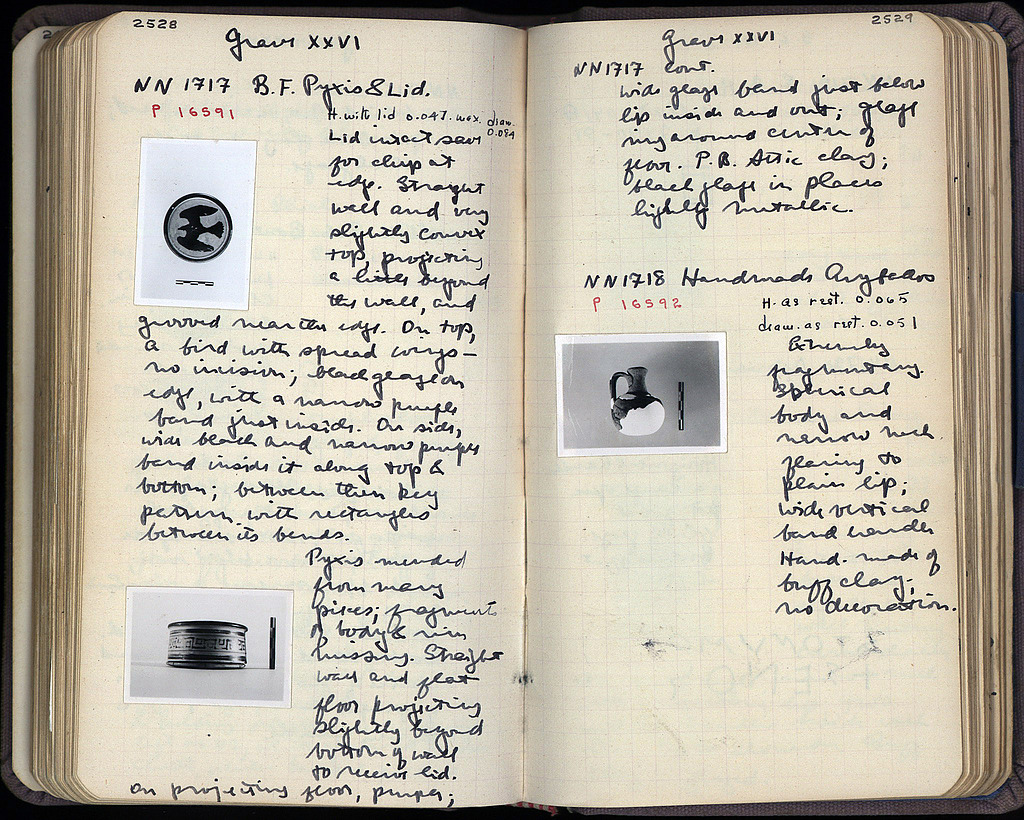 2528
Grave XXVI
NN 1717 B.F. Pyxis & Lid.
P 16591
H. with lid 0.047. max. diam. 0.084
Lid intact save
for chip at
edge. Straight
wall and very
slightly convex
top, projecting
a little beyond
the wall, and
grooved near the edge. On top,
a bird with spread wings –
no incision; black glaze on
edge, with a narrow purple
band just inside. On side,
wide black and narrow purple
band inside it along top &
bottom; between them key
pattern with rectangles
between its bends.
Pyxis mended
from many
pieces; fragments
of body & rim
missing. Straight
wall and flat
floor projecting
slightly beyond
bottom of wall
to receive lid.
On projecting floor, purple;
2529
Grave XXVI
NN 1717 cont.
wide glaze band just below
lip inside and out; glaze
ring around centre of
floor. P.B. Attic clay;
black glaze in places
lightly metallic.
NN 1718 Handmade Aryballos
P 16592
H. as rest. 0.065
diam. as rest. 0.051
Extremely
fragmentary.
Spherical
body and
narrow neck
flaring to
plain lip;
wide vertical
band handle
Hand-made of
buff clay;
no decoration.